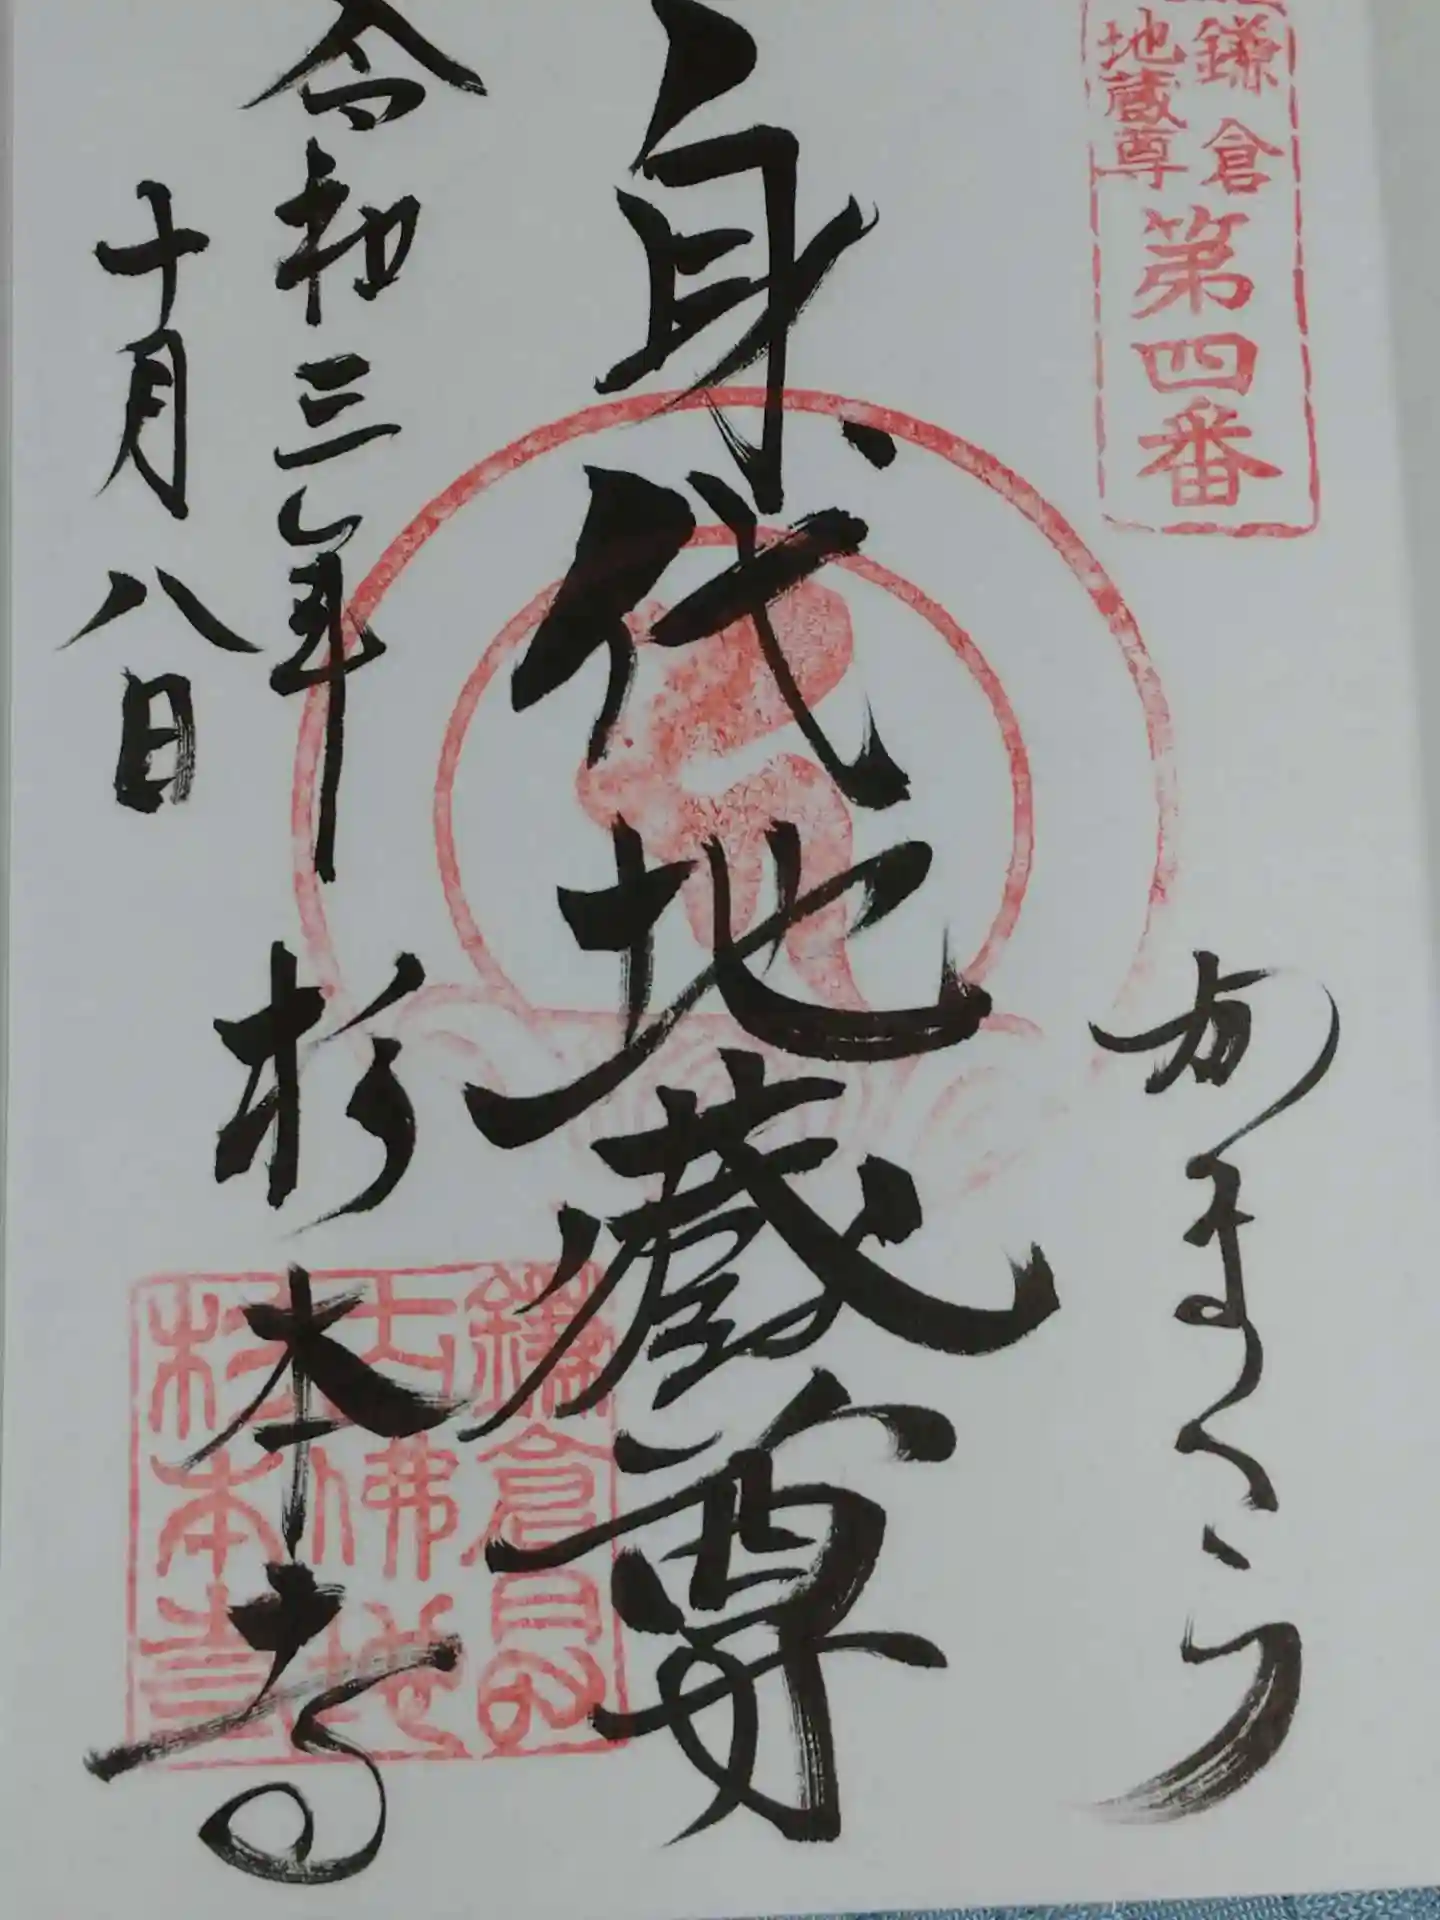 鎌倉
地蔵尊
第四番
かまくら
身代地蔵尊
令和三年
十月八日
杉本寺
鎌倉最初
仏地
杉本寺